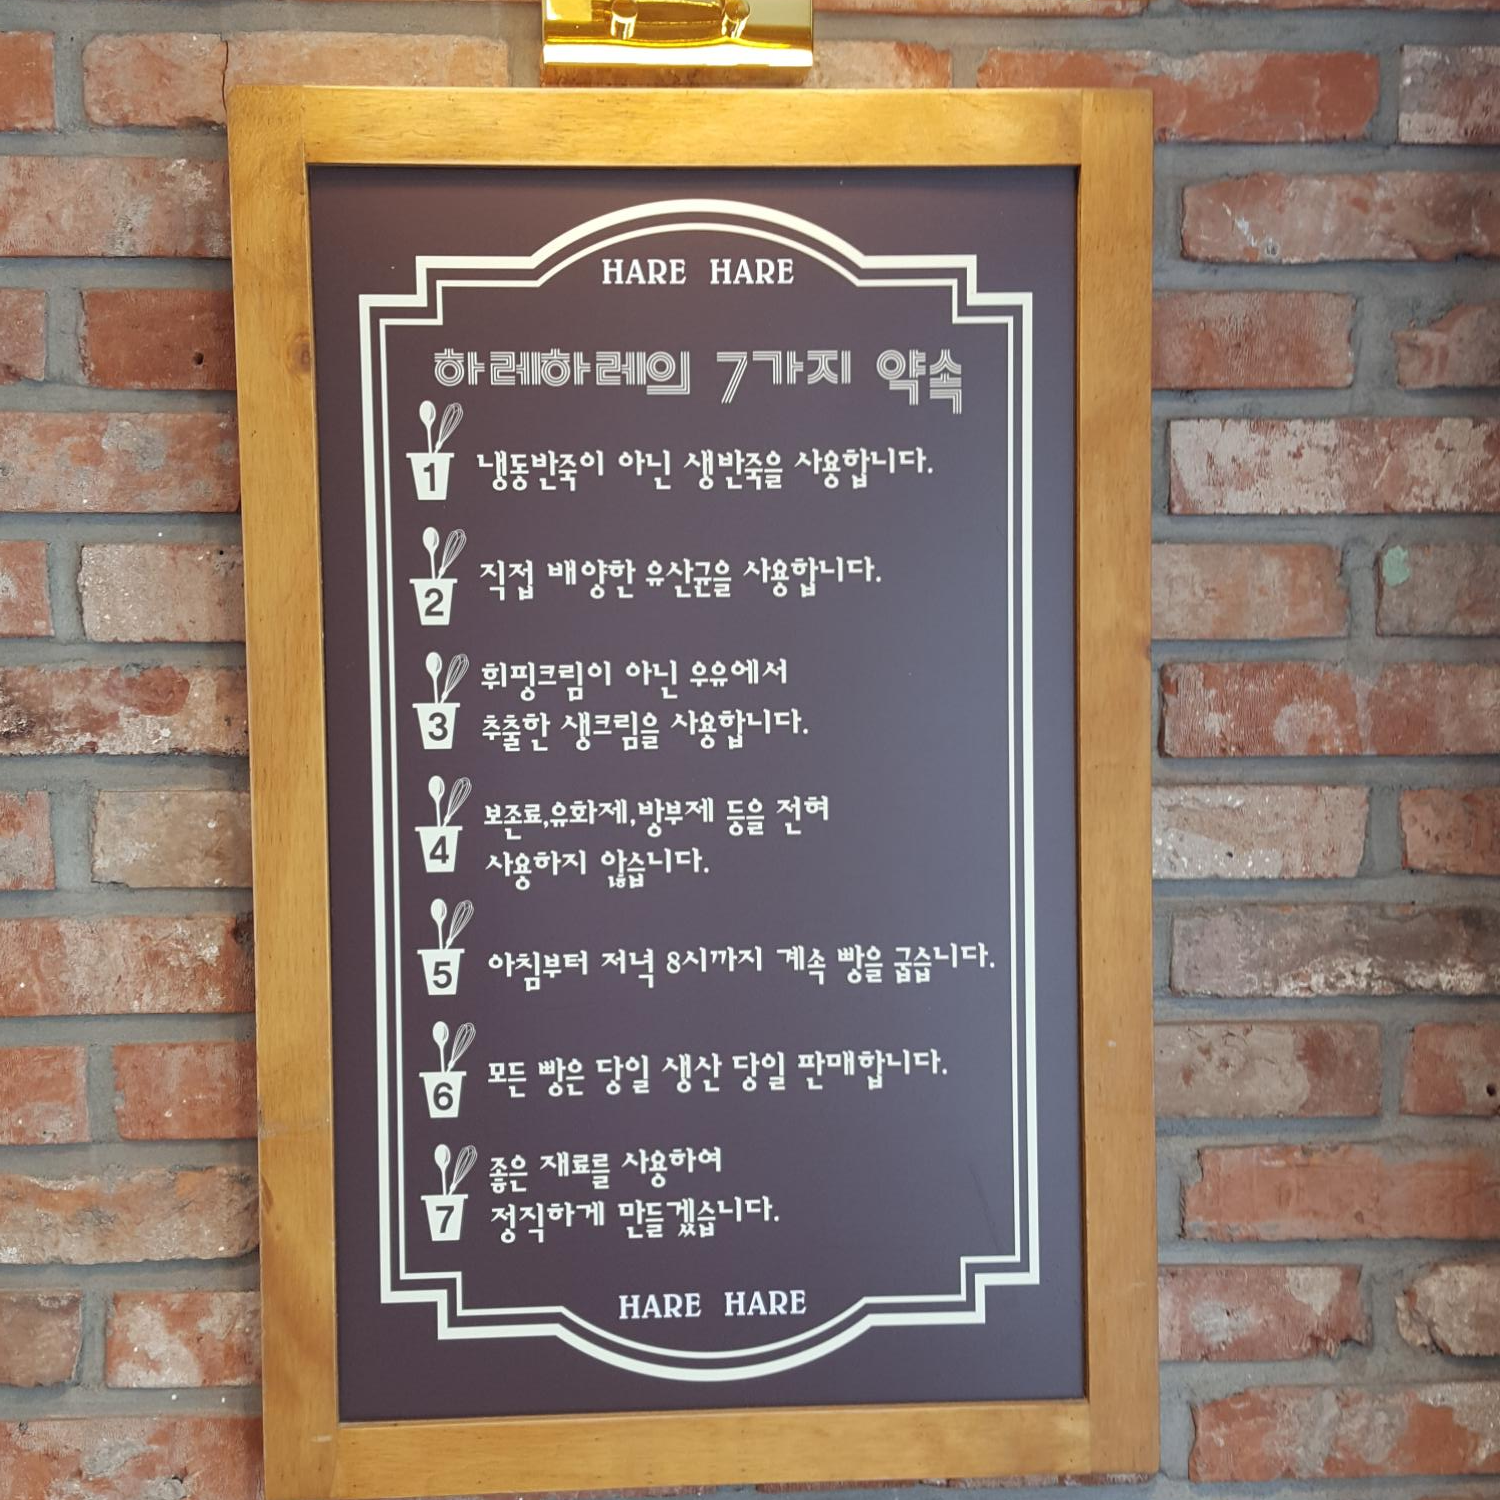 HARE HARE
하레하레의 7가지 약속
1 냉동반죽이 아닌 생반죽을 사용합니다.
2 직접 배양한 유산균을 사용합니다.
3 휘핑크림이 아닌 우유에서
추출한 생크림을 사용합니다.
4 보존료,유화제,방부제 등을 전혀
사용하지 않습니다.
5 아침부터 저녁 8시까지 계속 빵을 굽습니다.
6 모든 빵은 당일 생산 당일 판매합니다.
7 좋은 재료를 사용하여
정직하게 만들겠습니다.
HARE HARE